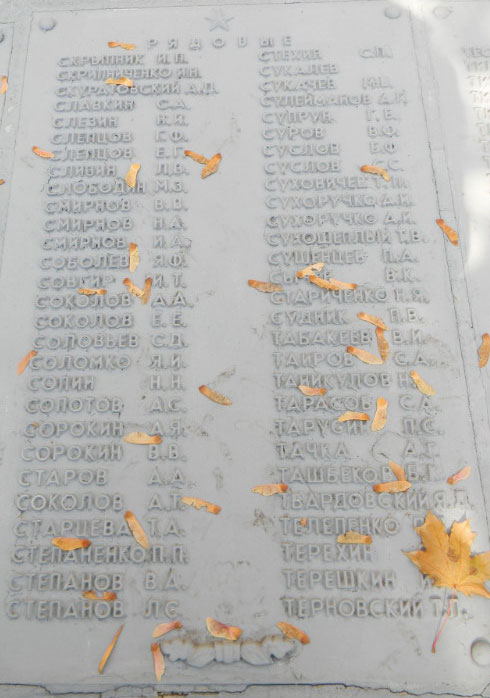 РЯДОВЫЕ
СКРЫПНИК И.П.
СКРИПНИЧЕНКО И.Н.
СКУРАТОВСКИЙ А.Д.
СЛАВКИН С.А.
СЛЕЗИН Н.И.
СЛЕПЦОВ Г.Ф.
СЛЕПЦОВ Е.Г.
СЛИВИН Л.В.
СЛОБОДИН М.З.
СМИРНОВ В.В.
СМИРНОВ Н.А.
СМИРНОВ И.А.
СОБОЛЕВ Я.Ф.
И.Т.
СОКОЛОВ А.А.
СОКОЛОВ Е.Е.
СОЛОВЬЕВ С.Д.
СОЛОМКО Я.И.
СОЛИН Н.Н.
СОЛОТОВ А.С.
СОРОКИН А.Я.
СОРОКИН В.В.
СТАРОВ А.А.
СОКОЛОВ А.Т.
СТАРЦЕВА Т.А.
СТЕПАНЕНКО П.П.
СТЕПАНОВ В.А.
СТЕПАНОВ Л.С.
СТЕХИН С.П.
СУКАЛЕВ
СУКАЧЕВ
СУЛЕЙМАНОВ Д.Г.
СУПРУН Г.Е.
СУРОВ В.Ф.
СУСЛОВ Е.Ф.
СУСЛОВ С.
СУХОВИЧЕВ
СУХОРУЧКО Д.Н.
СУХОРУЧКО Д.Н.
СУХОЩЕПЛЫЙ Т.В.
СУШЕНЦЕВ П.А.
В.К.
СТАРИЧЕНКО Н.Я.
СУДНИК П.В.
ТАБАКЕЕВ В.И.
ТАИРОВ С.А.
ТАНИКУЛОВ
ТАРАСОВ С.А.
ТАРУСИН П.С.
ТАЧКА А.Г.
ТАШБЕКОВ Б.Г.
ТВАРДОВСКИЙ Я.Л.
ТЕЛЕПЕНКО
ТЕРЕХИН
ТЕРЕШКИН
ТЕРНОВСКИЙ Т.П.